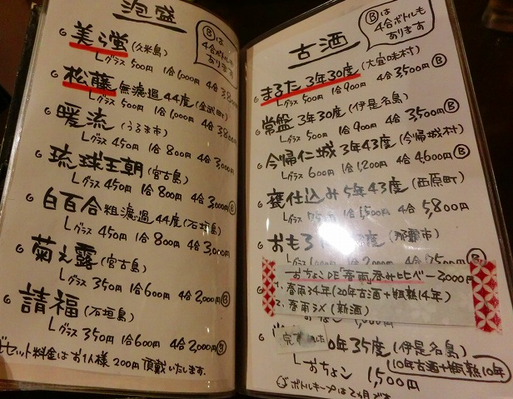 泡盛
Ⓑは
4合ボトルも
あります
美ら蛍(久米島)
Lグラス 500円 1合 1,000円 4合
松藤 無濾過44度(金武町)
Lグラス 500円 1合 1,000円 4合
暖流(うるま市)
Lグラス 450円 1合 800円 4合
琉球王朝(宮古島)
Lグラス 450円 1合 800円 4合 3,000円Ⓑ
白百合 粗濾過44度(石垣島)
Lグラス 450円 1合 800円 4合 3,000円
菊之露(宮古島)
Lグラス 350円 1合 600円 4合 2,000円Ⓑ
請福(石垣島)
Lグラス 350円 1合 600円 4合 2,000円Ⓑ
セット料金はお1人様 200円 頂戴いたします。
古酒
Ⓑは
4合ボトルも
あります
まるた 3年30度(大宜味村)
Lグラス 500円 1合 900円 4合 3500円Ⓑ
常盤 3年30度(伊是名島)
Lグラス 500円 1合 900円 4合 3,500円Ⓑ
今帰仁城 3年43度(今帰仁村)
Lグラス 600円 1合 1,200円 4合 4600円Ⓑ
甕仕込み 5年43度(西原町)
Lグラス 1合 1,500円 4合 5,800円
おもろ(那覇市)
おちょこDE「春雨」呑み比べ 3,000円
1. 春雨34年(20年古酒+瓶熟14年)
2. 春雨
3. 春雨3X(新酒)
0年35度(伊是名島)
Lおちょこ 1,500円
(10年古酒+瓶熟10年)